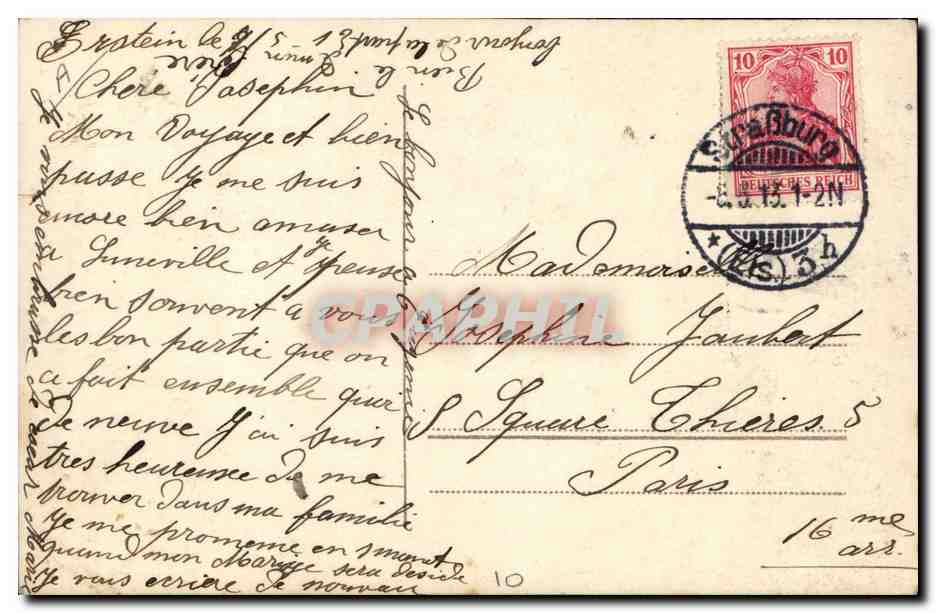 Erstein le
Chère Josephin
Mon Voyage et bien
passe Je me suis
encore bien amuser
a Luneville et Je pense
bien souvent a vous
les bon partie que on
a fait ensemble
de neuve J ai suis
tres heureuse de me
trouver dans ma familie
Je me promene en
quand mon Mariage sera deside
Je vous ecrire de nouveau
Le bonjour a
Bien le
bonjour de la part
10 10
DEUTSCHES REICH
Straßburg
-8.3.13.1-2N
* (Els.) 3h
Mademoise
Josephine Jaubert
8 Square Thieres 5
Paris
16 me
arr.
10
CPAPHIL